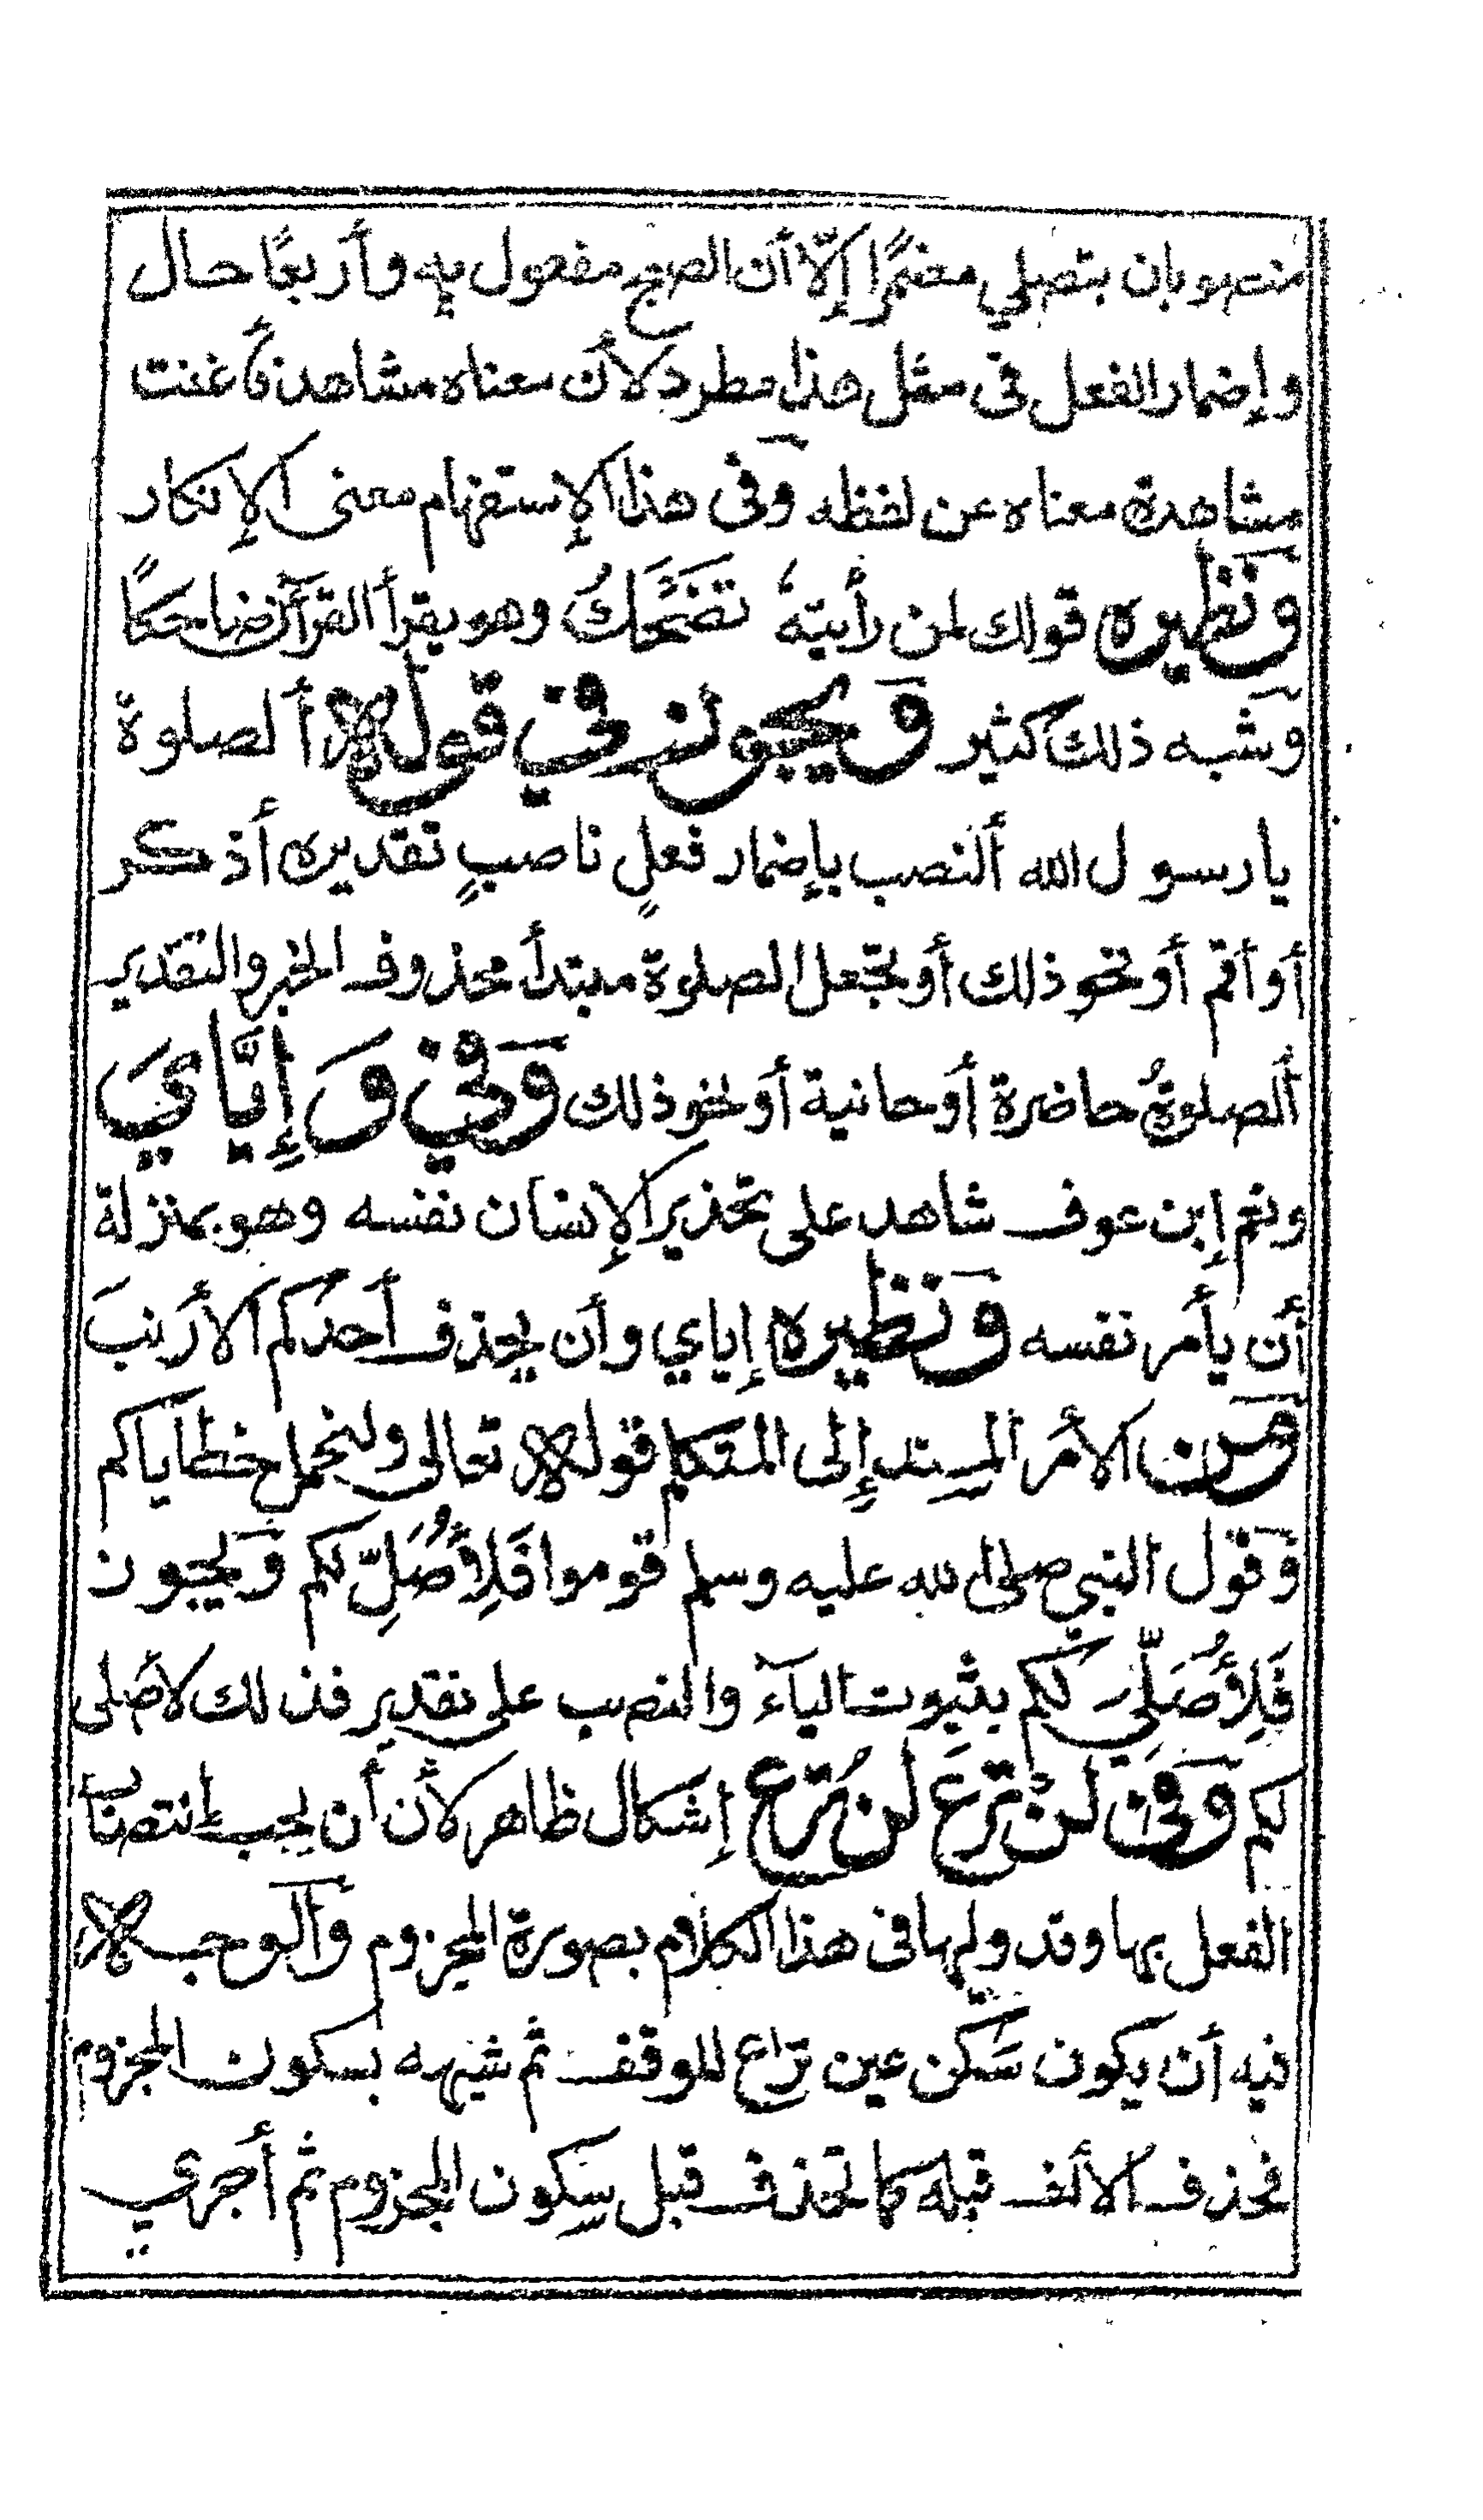 منصوبان بتصلي مضمرًا إلّا أن الصبح مفعول به وأربعًا حال
وإضمار الفعل في مثل هذا مطرد لأن معناه مشاهد فأغنت
مشاهدة معناه عن لفظه وفي هذا الإستفهام معنى الإنكار
ونظيره قولك لمن رأيته تضحك وهو يقرأ القرآن ضاحكًا
وشبه ذلك كثير ويجوز في قوله ألصلوة
يا رسول الله ألنصب بإضمار فعلٍ ناصبٍ تقديره أذكر
أو أتم أو نحو ذلك أو تجعل الصلوة مبتدأ محذوف الخبر والتقدير
ألصلوةُ حاضرة أو حانية أو نحو ذلك وفي وَإِيَّايَ
ونعم إبن عوف شاهد على تحذير الإنسان نفسه وهو بمنزلة
أن يأمر نفسه ونظيره إياي وأن يحذف أحدكم الأرنبَ
ومن الأمر المسند إلى المتكلم قوله تعالى ولنحمل خطاياكم
وقول النبي صلى الله عليه وسلم قوموا فَلِأُصَلِّ لكم ويجوز
فَلِأُصَلِّيَ لكم بثبوت الياء والنصب على تقدير فذلك لأصلى
لكم وفي لن ترع لن تُرع إشكال ظاهر لأن أن يجب إنتصاب
الفعل بها وقد وليها في هذا الكلام بصورة المجزوم والوجه
فيه أن يكون سَكن عين تراع للوقف ثم شبهه بسكون المجزوم
فحذف الألف قبله كما تحذف قبل سكون المجزوم ثم أجري